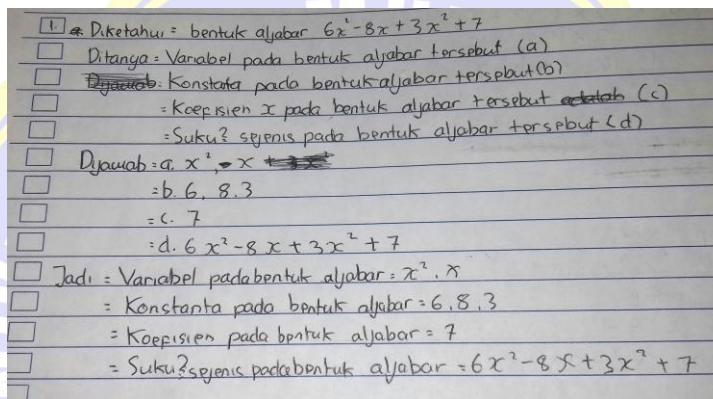 1. Diketahui = bentuk aljabar 6x²-8x+3x²+7
Ditanya = Variabel pada bentuk aljabar tersebut (a)
Dijawab: Konstata pada bentuk aljabar tersebut (b)
= Koefisien x pada bentuk aljabar tersebut adalah (c)
= Suku² sejenis pada bentuk aljabar tersebut (d)
Dijawab = a. x², x
= b. 6, 8.3
= c. 7
= d. 6x²-8x+3x²+7
Jadi = Variabel pada bentuk aljabar = x², x
= Konstanta pada bentuk aljabar = 6,8,3
= Koefisien pada bentuk aljabar = 7
= Suku² sejenis pada bentuk aljabar = 6x²-8x+3x²+7